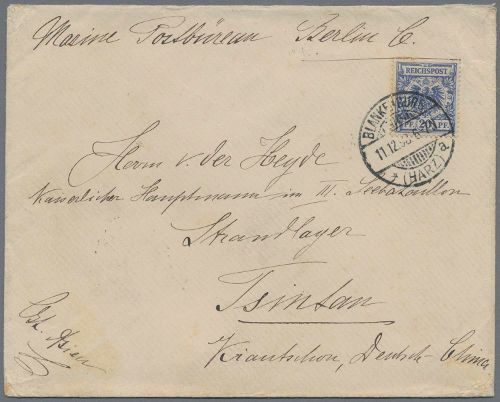 Marine Postbüreau Berlin C.
REICHSPOST
20 PF
BLANKENBURG
11.12.98
(HARZ) a
Herrn v. der Heyde
Kaiserlicher Hauptmann im III. Seebataillon
Strandlager
Tsintau
Kiautschou, Deutsch-China
Ost-Asien